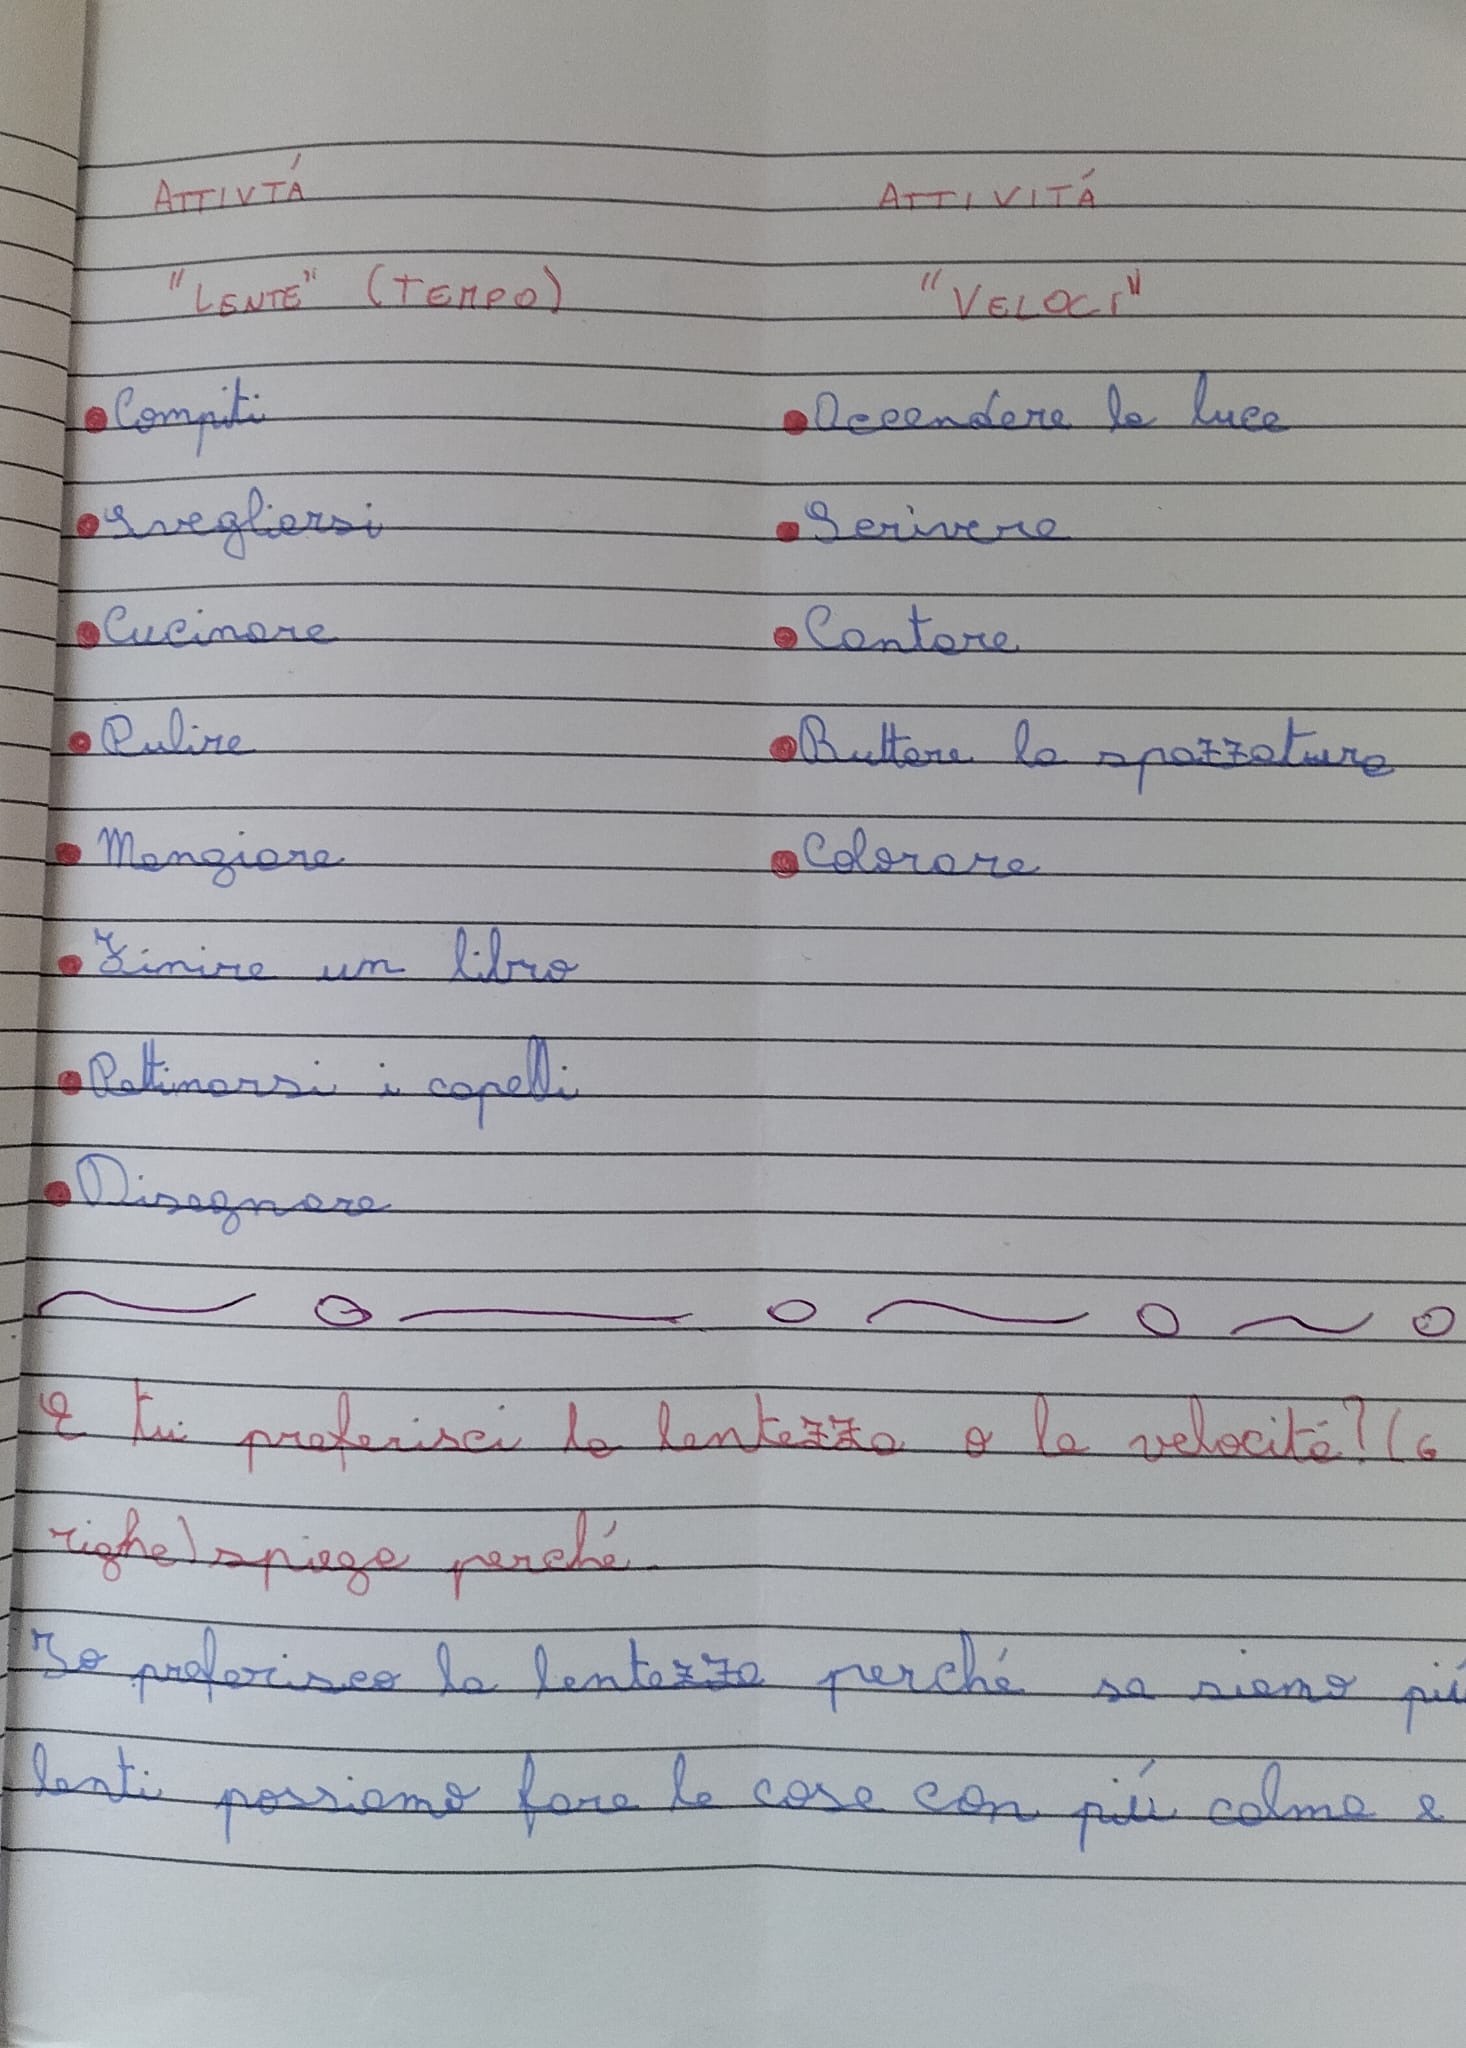 ATTIVTÁ ATTIVITÁ
"LENTE" (TEMPO) "VELOCI"
•Compiti •Accendere la luce
•Svegliarsi •Scrivere
•Cucinare •Cantare
•Pulire •Buttare la spazzatura
•Mangiare •Colorare
•Finire un libro
•Pettinarsi i capelli
•Disegnare
E tu preferisci la lentezza o la velocitá? (6
righe) spiega perché.
Io preferisco la lentezza perché se siamo piú
lenti possiamo fare le cose con piú calma e